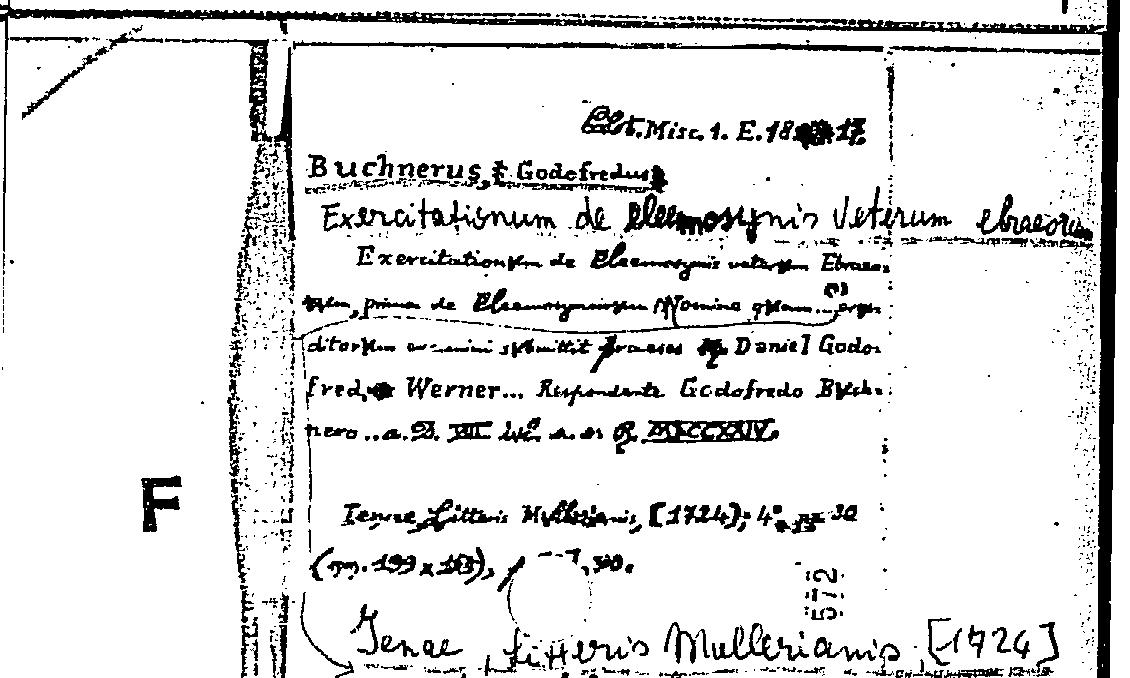 Misc. 1. E. 18 17.
Buchnerus, Godofredus
Exercitationum de Eleemosynis Veterum ebraeorum
Exercitationum de Eleemosynis veterum Ebraeo-
rum, prima de Eleemosynarum Nomine quam...
ditorum examini submittit praeses Daniel Godo-
fred, Werner... Respondente Godofredo Buch-
nero .. a. MDCCXXIV.
F
Ienae, Litteris Mullerianis, [1724]; 4° 30
(mm. 199 x 163),
572
Jenae, litteris Mullerianis, [1724]